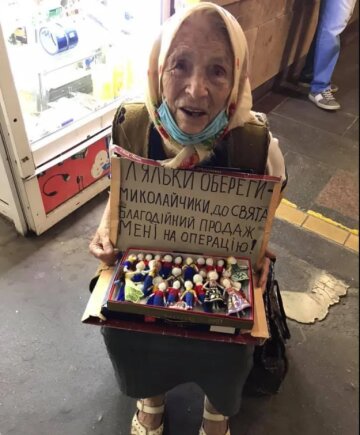 ЛЯЛЬКИ ОБЕРЕГИ-
МИКОЛАЙЧИКИ, ДО СВЯТА
БЛАГОДІЙНИЙ ПРОДАЖ
МЕНІ НА ОПЕРАЦІЮ!